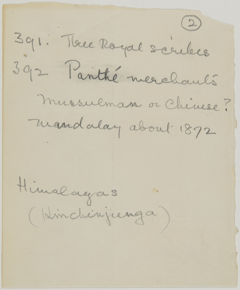 2
391. Three Royal scribes
392 Panthé merchants
Mussulman or Chinese?
Mandalay about 1872
Himalayas
(Kinchinjunga)